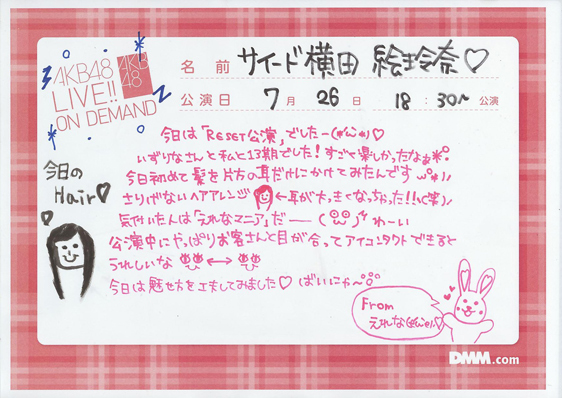 AKB48
LIVE!!
ON DEMAND
AKB
48
名前 サイード横田 絵玲奈♡
公演日 7月 26日 18:30~ 公演
今日は「RESET公演」でしたー♡
いずりなさんと私と13期でした!すごく楽しかったなぁ
今日初めて髪を片方の耳だけにかけてみたんです
さりげないヘアアレンジ ←耳が大っきくなっちゃった!!(笑)
気付いた人は「えれなマニア」だー わーい
公演中にやっぱりお客さんと目が合ってアイコンタクトできると
うれしいな ↔
今日は魅せ方を工夫してみました♡ ばいにゃ〜
今日の
Hair♡
From
えれな
DMM.com